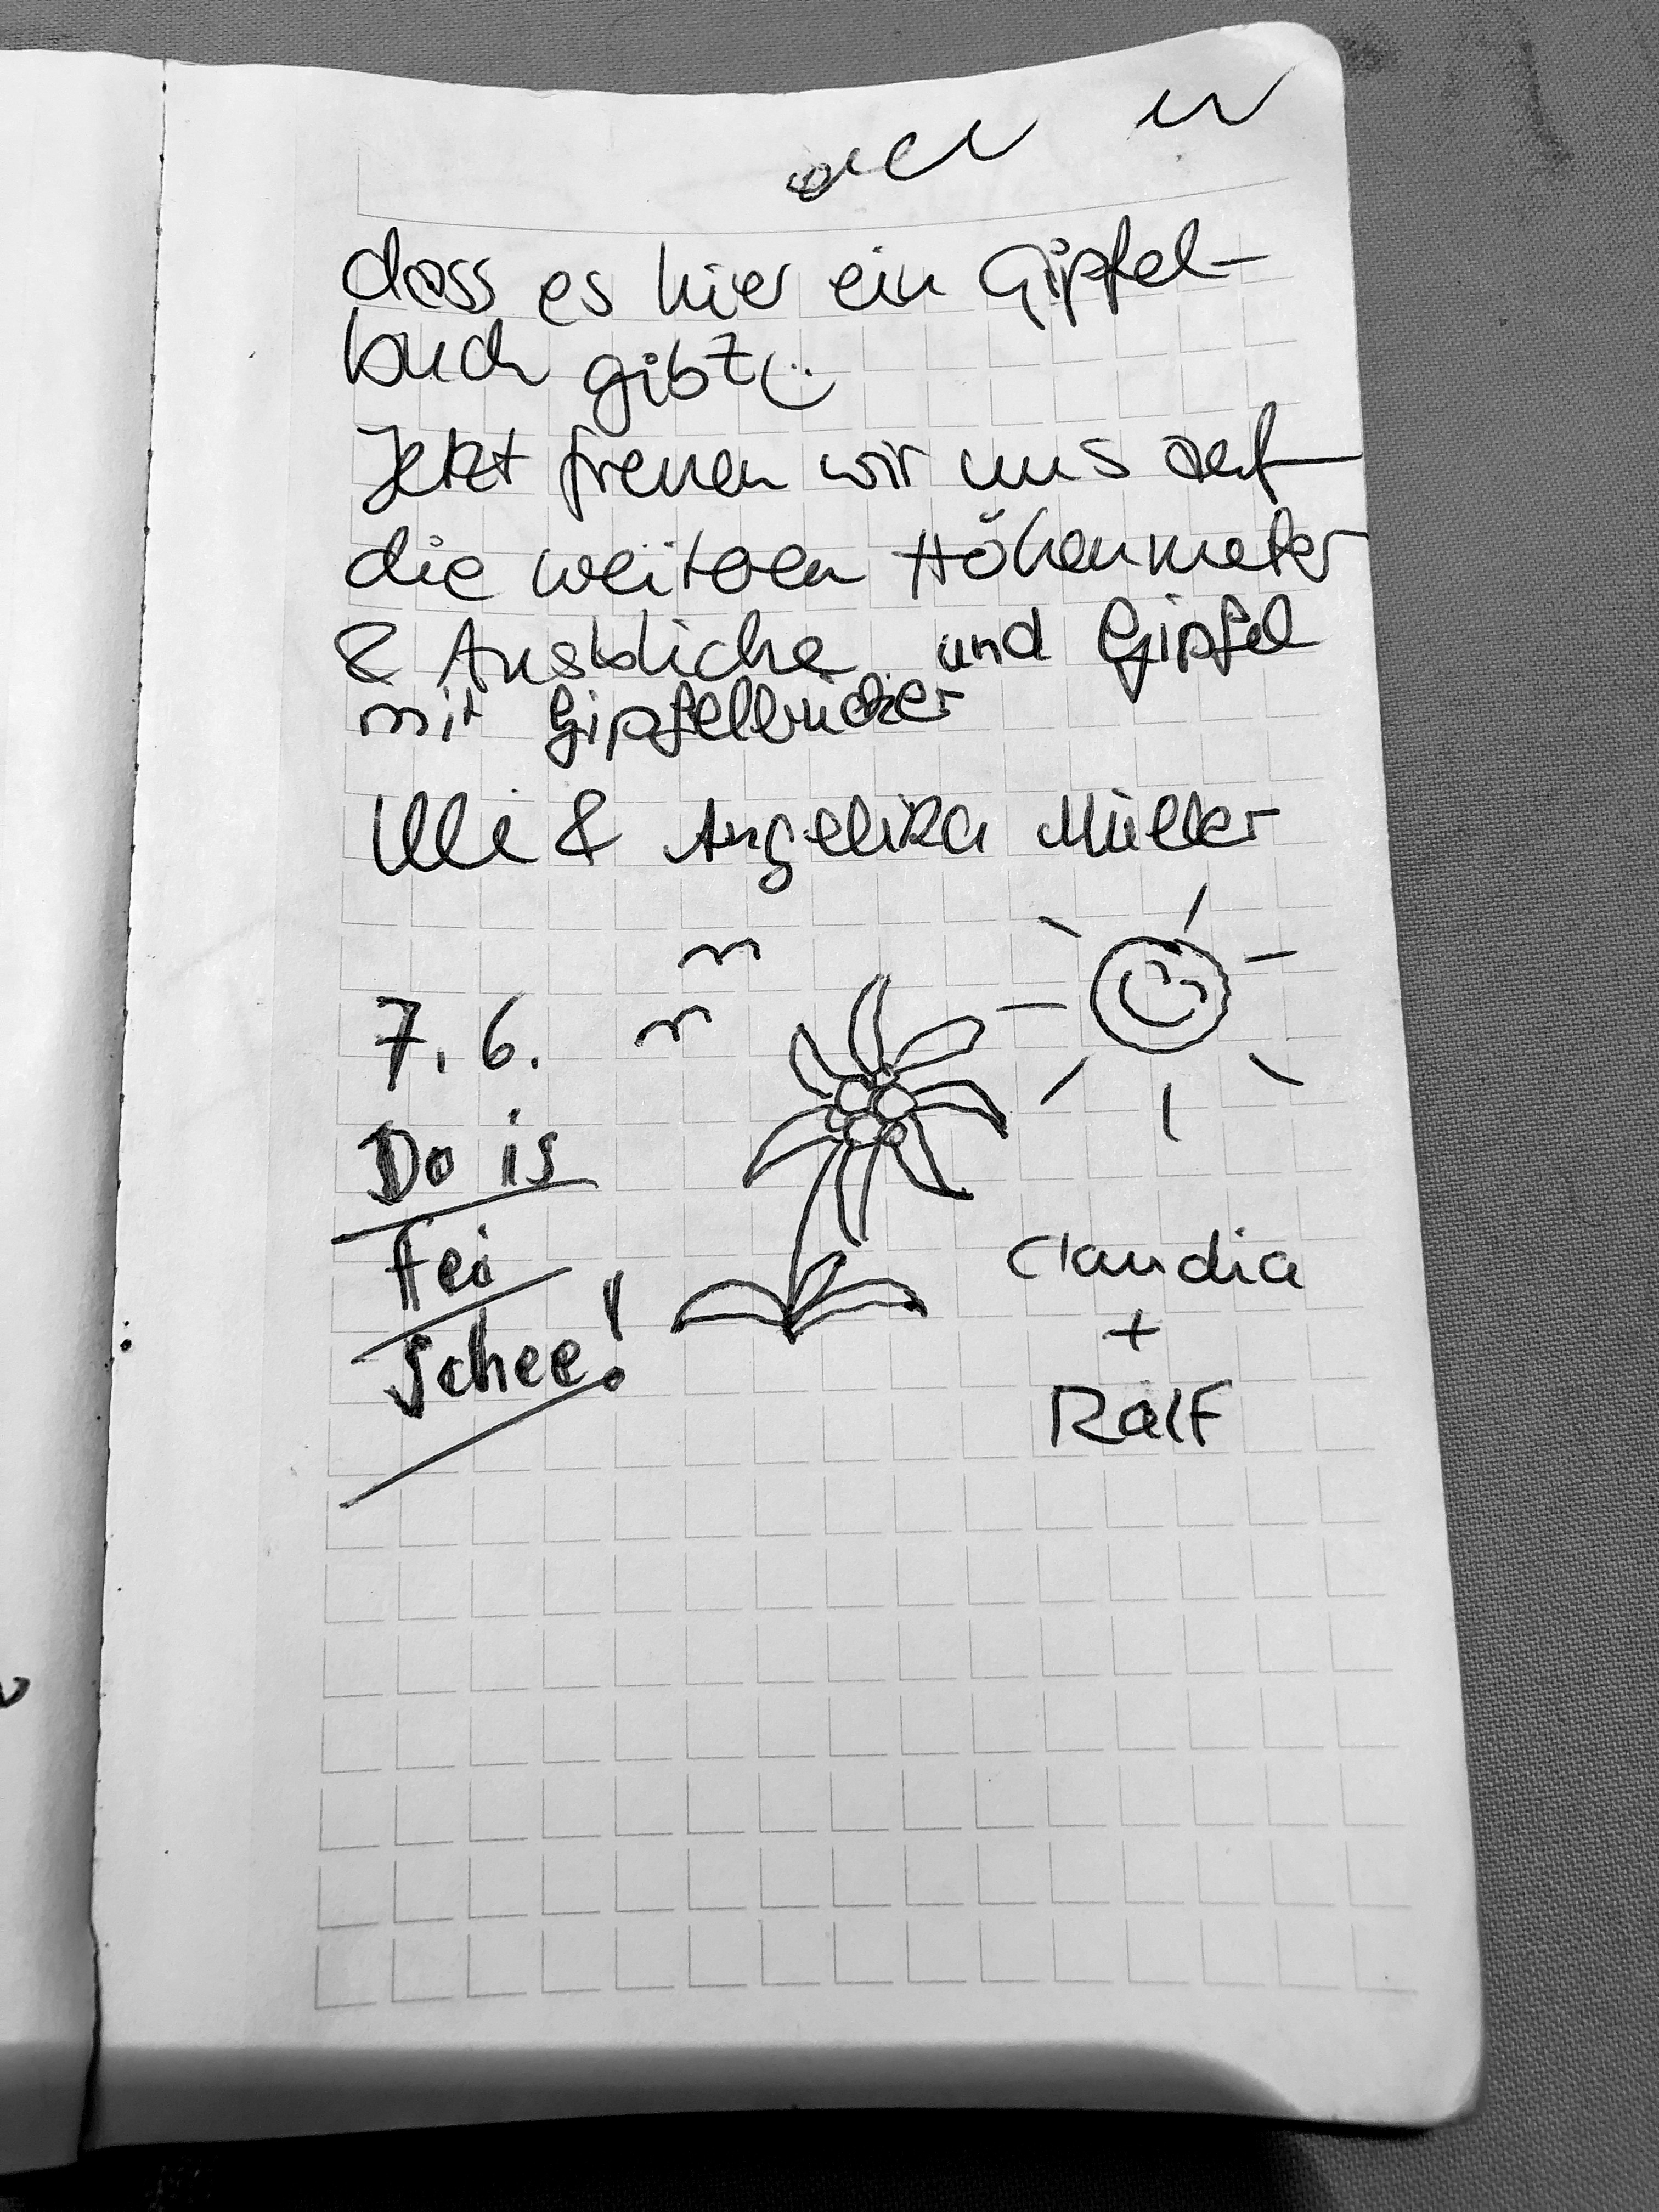 dass es hier ein Gipfel-
buch gibt
Jetzt freuen wir uns auf
die weiteren Höhenmeter
& Ausblicke und Gipfel
mit Gipfelbücher
Ulli & Angelika Müller
7.6.
Do is
Fei
Schee!
Claudia
+
Ralf